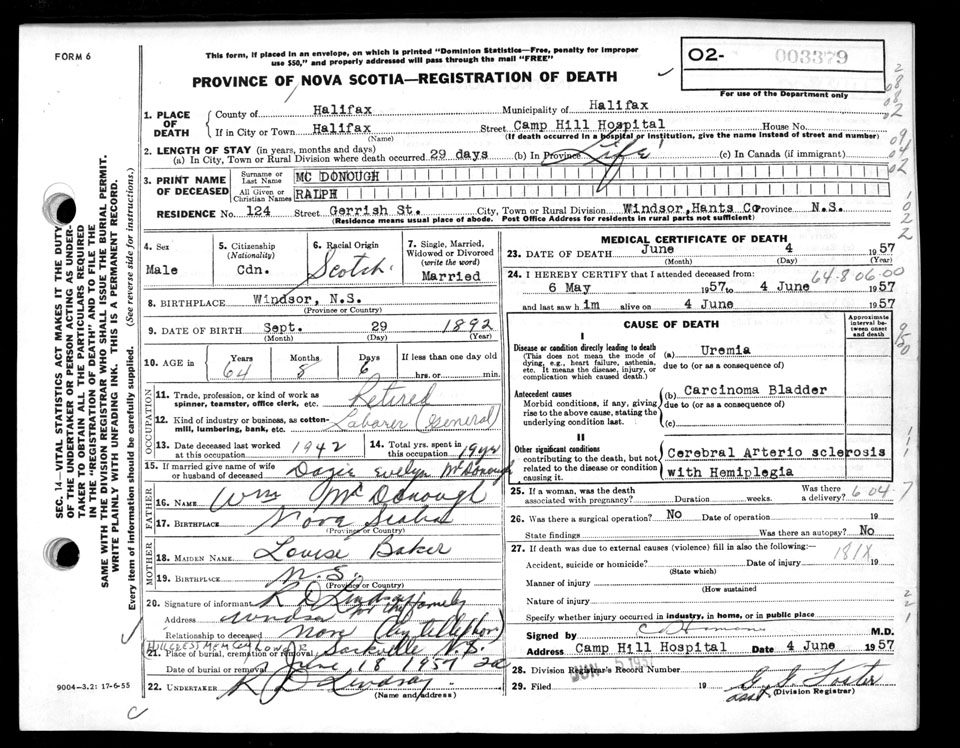 FORM 6
This form, if placed in an envelope, on which is printed "Dominion Statistics—Free, penalty for improper
use $50," and properly addressed will pass through the mail "FREE"
PROVINCE OF NOVA SCOTIA—REGISTRATION OF DEATH
02- 003379
For use of the Department only
1. PLACE OF DEATH
County of Halifax Municipality of Halifax
If in City or Town Halifax (Name) Street Camp Hill Hospital House No.
(If death occurred in a hospital or institution, give the name instead of street and number)
2. LENGTH OF STAY (in years, months and days)
(a) In City, Town or Rural Division where death occurred 29 days (b) In Province Life (c) In Canada (if immigrant)
3. PRINT NAME OF DECEASED
Surname or Last Name MC DONOUGH
All Given or Christian Names RALPH
RESIDENCE No. 124 Street Gerrish St. City, Town or Rural Division Windsor, Hants Co Province N.S.
(Residence means usual place of abode. Post Office Address for residents in rural parts not sufficient)
4. Sex Male
5. Citizenship (Nationality) Cdn.
6. Racial Origin Scotch.
7. Single, Married, Widowed or Divorced (write the word) Married
8. BIRTHPLACE Windsor, N.S.
(Province or Country)
9. DATE OF BIRTH Sept. 29 1892
(Month) (Day) (Year)
10. AGE in Years 64 Months 8 Days 6 If less than one day old hrs. or min.
OCCUPATION
11. Trade, profession, or kind of work as spinner, teamster, office clerk, etc. Retired
12. Kind of industry or business, as cotton-mill, lumbering, bank, etc. Laborer (General)
13. Date deceased last worked at this occupation 1942
14. Total yrs. spent in this occupation 19yrs
15. If married give name of wife or husband of deceased Evelyn McDonough
FATHER
16. NAME Wm McDonough
17. BIRTHPLACE Nova Scotia
(Province or Country)
MOTHER
18. MAIDEN NAME Louise Baker
19. BIRTHPLACE N.S.
(Province or Country)
20. Signature of informant R D Lindsay for the family
Address Windsor
Relationship to deceased None (by telephone)
HILLCREST MEM LOWER
21. Place of burial, cremation or removal Sackville N.S.
Date of burial or removal June 18 1957
22. UNDERTAKER R D Lindsay
(Name and address)
MEDICAL CERTIFICATE OF DEATH
23. DATE OF DEATH June 4 1957
(Month) (Day) (Year)
64-8 06-00
24. I HEREBY CERTIFY that I attended deceased from:
6 May 1957 to 4 June 1957
and last saw him alive on 4 June 1957
CAUSE OF DEATH
Approximate interval between onset and death
I
Disease or condition directly leading to death
(This does not mean the mode of dying, e.g., heart failure, asthenia, etc. It means the disease, injury, or complication which caused death.)
(a) Uremia
due to (or as a consequence of)
Antecedent causes
Morbid conditions, if any, giving rise to the above cause, stating the underlying condition last.
(b) Carcinoma Bladder
due to (or as a consequence of)
(c)
II
Other significant conditions
contributing to the death, but not related to the disease or condition causing it.
Cerebral Arterio sclerosis
with Hemiplegia
25. If a woman, was the death associated with pregnancy? Duration weeks. Was there a delivery? 604-7
26. Was there a surgical operation? No Date of operation 19
State findings Was there an autopsy? No
27. If death was due to external causes (violence) fill in also the following:— 181X
Accident, suicide or homicide? Date of injury 19
(State which)
Manner of injury
(How sustained)
Nature of injury
Specify whether injury occurred in industry, in home, or in public place
Signed by M.D.
Address Camp Hill Hospital Date 4 June 1957
28. Division Registrar's Record Number
29. Filed JUN 5 1957 19 Foster
(Division Registrar)
SEC. 14—VITAL STATISTICS ACT MAKES IT THE DUTY
OF THE UNDERTAKER OR PERSON ACTING AS UNDER-
TAKER TO OBTAIN ALL THE PARTICULARS REQUIRED
IN THE "REGISTRATION OF DEATH" AND TO FILE THE
SAME WITH THE DIVISION REGISTRAR WHO SHALL ISSUE THE BURIAL PERMIT.
WRITE PLAINLY WITH UNFADING INK. THIS IS A PERMANENT RECORD.
Every item of information should be carefully supplied. (See reverse side for instructions.)
9004-3.2: 17-6-55